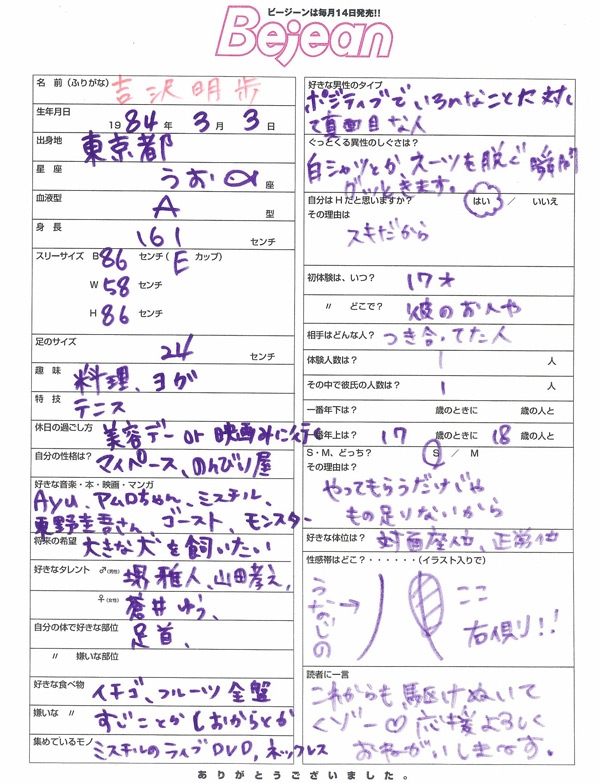 ビージーンは毎月14日発売!!
Bejean
名 前 (ふりがな) 吉沢明歩
生年月日
1984年 3月 3日
出身地 東京都
星 座 うお 座
血液型 A 型
身 長 161 センチ
スリーサイズ B 86 センチ( E カップ)
W 58 センチ
H 86 センチ
足のサイズ 24 センチ
趣 味 料理、ヨガ
特 技 テニス
休日の過ごし方 美容デー or 映画みに行く
自分の性格は? マイペース、のんびり屋
好きな音楽・本・映画・マンガ
Ayu、アムロちゃん、ミスチル、
東野圭吾さん、ゴースト、モンスター
将来の希望 大きな犬を飼いたい
好きなタレント ♂(男性) 堺雅人、山田孝之、
♀(女性) 蒼井ゆう、
自分の体で好きな部位 足首、
〃 嫌いな部位
好きな食べ物 イチゴ、フルーツ全盤
嫌いな 〃 すじことかしおからとか
集めているモノ ミスチルのライブDVD, ネックレス
好きな男性のタイプ
ポジティブでいろんなことに対し
て真面目な人
ぐっとくる異性のしぐさは?
白シャツとか、スーツを脱ぐ瞬間
グッときます。
自分はHだと思いますか? はい / いいえ
その理由は
スキだから
初体験は、いつ? 17才
〃 どこで? 彼のお人や
相手はどんな人? つき合ってた人
体験人数は? 1 人
その中で彼氏の人数は? 1 人
一番年下は? 歳のときに 歳の人と
一番年上は? 17 歳のときに 18 歳の人と
S・M、どっち? S / M
その理由は?
やってもらうだけじゃ
もの足りないから
好きな体位は? 対面座位、正常位
性感帯はどこ?・・・・・・(イラスト入りで)
うなじの
ここ
右側り!!
読者に一言
これからも駆けぬいて
くゾー♡応援よろしく
おねがいします。
ありがとうございました。